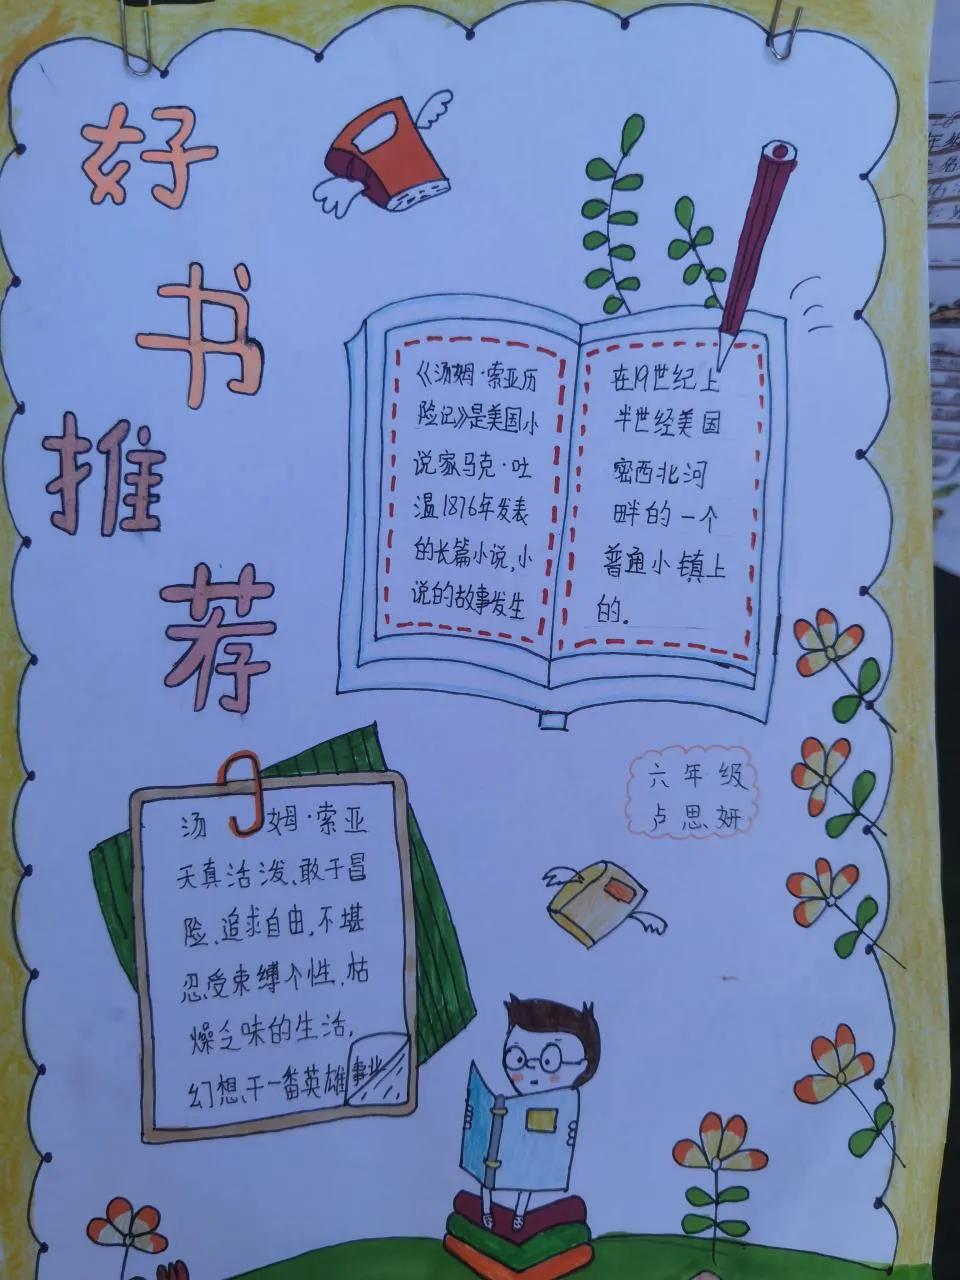 好
书
推
荐
《汤姆·索亚历
险记》是美国小
说家马克·吐
温1876年发表
的长篇小说,小
说的故事发生
在19世纪上
半世经美国
密西北河
畔的一个
普通小镇上
的.
六年级
卢思妍
汤姆·索亚
天真活泼、敢于冒
险、追求自由,不堪
忍受束缚个性、枯
燥乏味的生活,
幻想干一番英雄事业